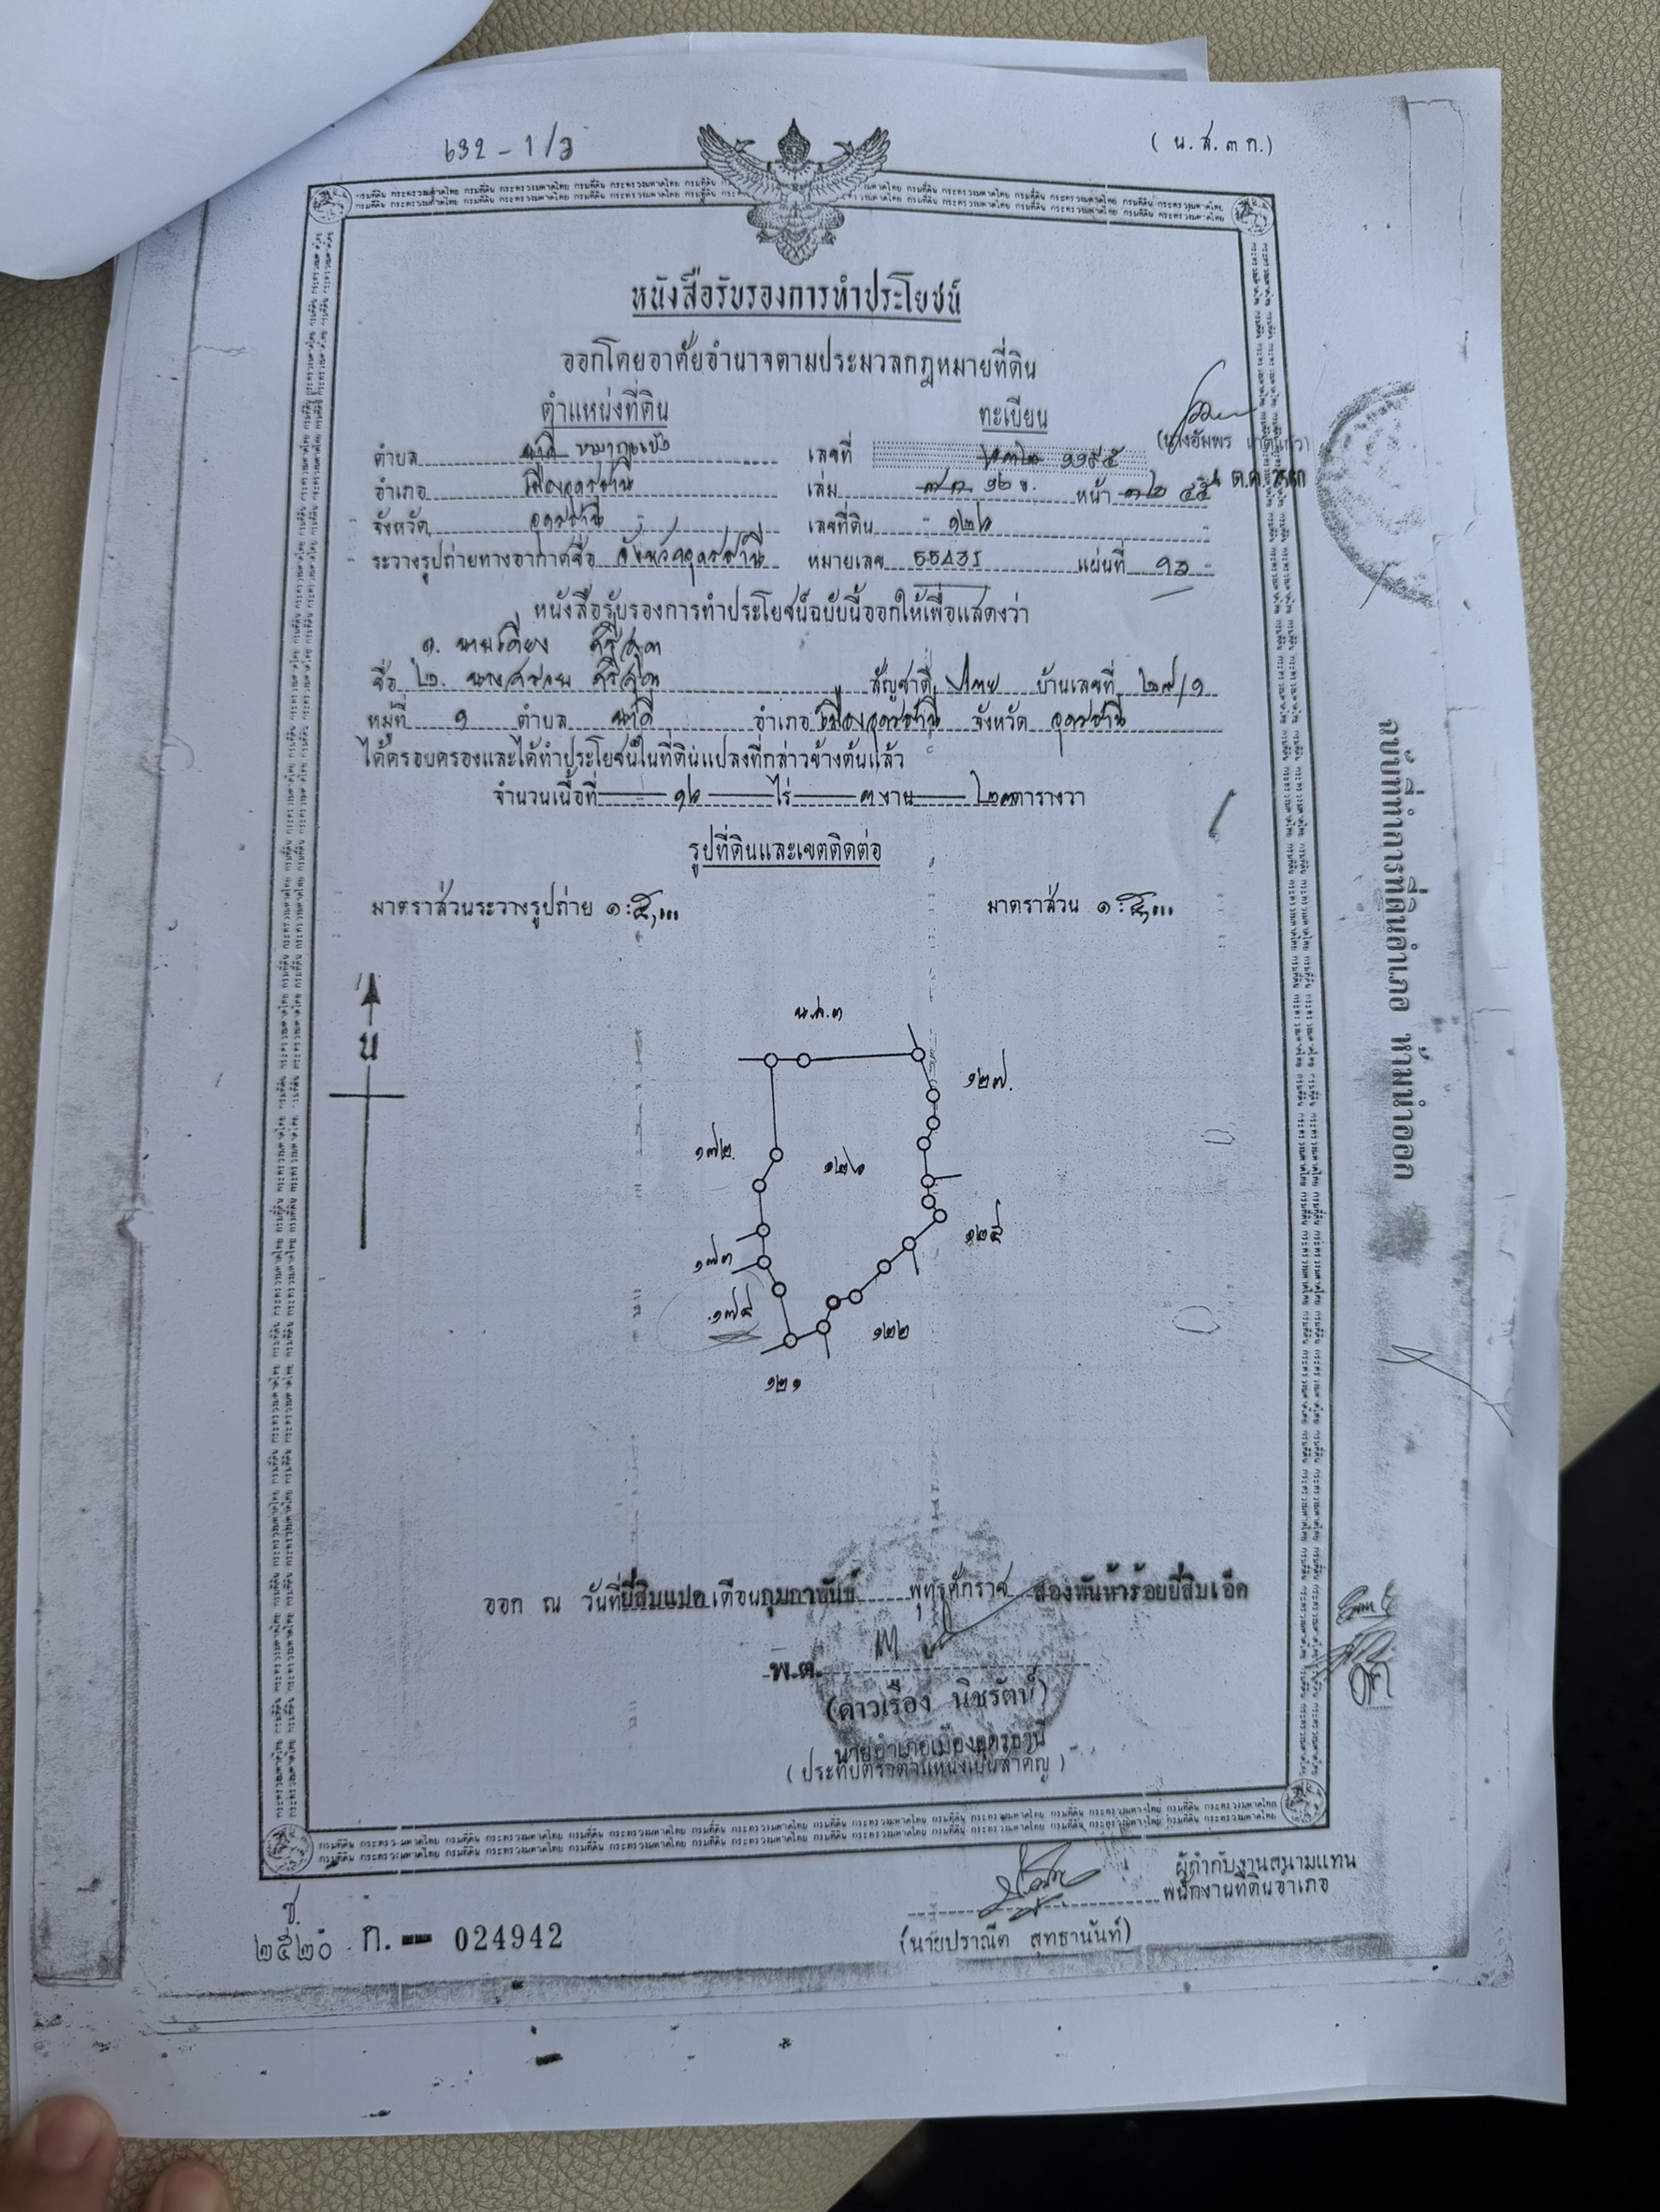 632 - 1/3
( น.ส.๓ ก.)
หนังสือรับรองการทำประโยชน์
ออกโดยอาศัยอำนาจตามประมวลกฎหมายที่ดิน
ตำแหน่งที่ดิน ทะเบียน
ตำบล นาดี หมากแข้ง เลขที่ ๑๑๙๕
อำเภอ เมืองอุดรธานี เล่ม ๑๒ ข. หน้า ๔๕
จังหวัด อุดรธานี เลขที่ดิน ๑๒๖
ระวางรูปถ่ายทางอากาศชื่อ จังหวัดอุดรธานี หมายเลข 5543I แผ่นที่ ๑๓
หนังสือรับรองการทำประโยชน์ฉบับนี้ออกให้เพื่อแสดงว่า
๑. นายเคียง
ชื่อ ๒. สัญชาติ ไทย บ้านเลขที่ ๒๗/๑
หมู่ที่ ๑ ตำบล นาดี อำเภอ เมืองอุดรธานี จังหวัด อุดรธานี
ได้ครอบครองและได้ทำประโยชน์ในที่ดินแปลงที่กล่าวข้างต้นแล้ว
จำนวนเนื้อที่ ๑๖ ไร่ ๓ งาน ๒๓ ตารางวา
รูปที่ดินและเขตติดต่อ
มาตราส่วนระวางรูปถ่าย ๑:๕,๐๐๐ มาตราส่วน ๑:๕,๐๐๐
น
น.ส.๓
๑๒๗.
๑๗๒.
๑๒๖
๑๒๕
๑๗๓
๑๗๔
๑๒๒
๑๒๑
ฉบับที่ทำการที่ดินอำเภอ ห้ามนำออก
ออก ณ วันที่ยี่สิบแปด เดือนกุมภาพันธ์ พุทธศักราช สองพันห้าร้อยยี่สิบเอ็ด
พ.ต.
(ดาวเรือง นิชรัตน์)
นายอำเภอเมืองอุดรธานี
( ประทับตราตำแหน่งเป็นสำคัญ )
ผู้กำกับงานสนามแทน
พนักงานที่ดินอำเภอ
(นายปราณีต สุทธานันท์)
ช.
๒๕๒๐ ก.— 024942